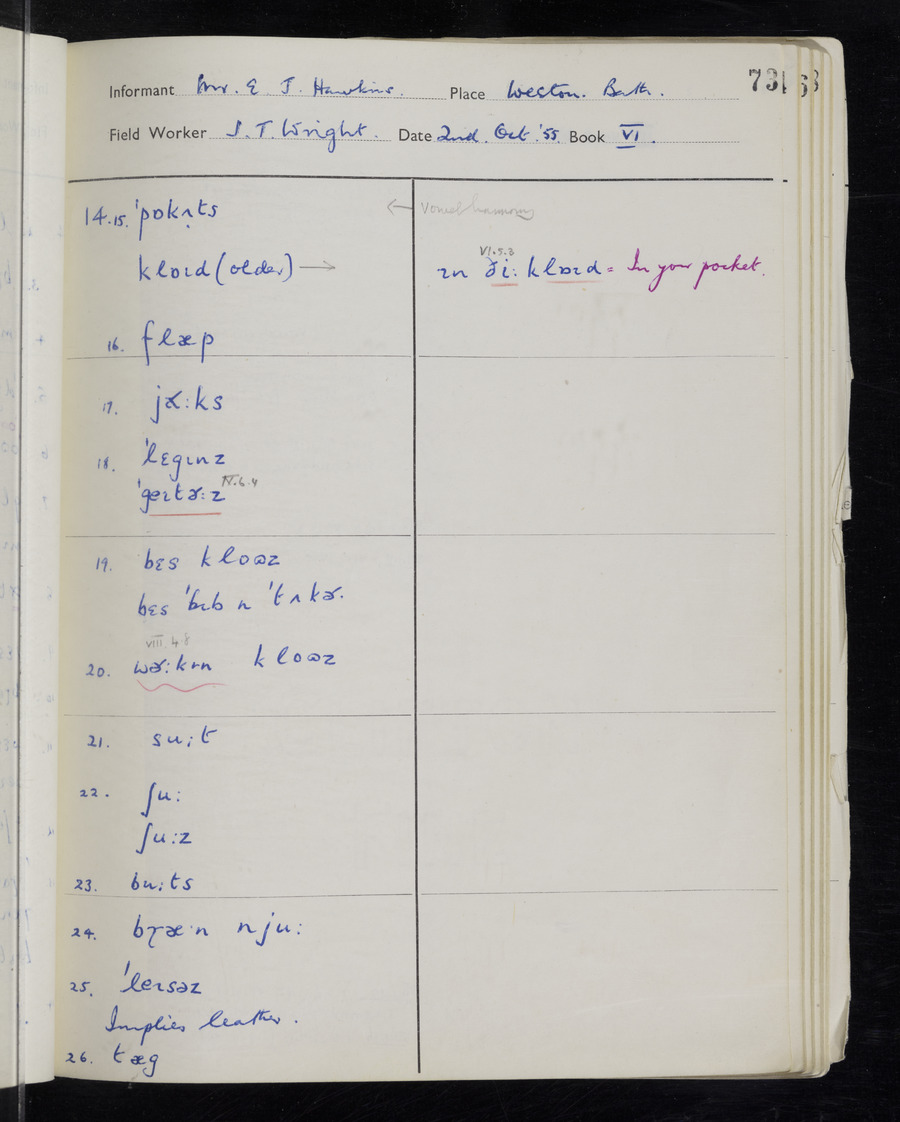 Informant Mr. E. J. Hawkins. Place Weston. Bath. 731
Field Worker J. T. Wright. Date 2nd. Oct. '55. Book VI.
14.15. 'pɒkɪ̣ts ← Vowel harmony
kloɪd (older) → VI.5.3
ɪn ði: klɒɪd = In your pocket.
16. flæp
17. jɤ:ks
18. 'lɛgɪnz
'geɪtɚ:z IV.6.4
19. bɛs kloɷz
bɛs 'bɪb n 'tʌkɚ.
VIII 4.8
20. wɚ:kɪn kloɷz
21. su:t
22. ʃu:
ʃu:z
23. bu:ts
24. bɽæ·n nju:
25. 'leɪsəz
Implies leather.
26. tæg